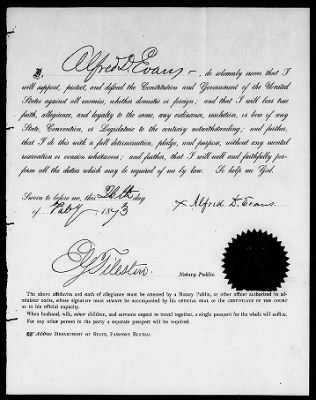 I, Alfred D. Evans, do solemnly swear that I
will support, protect, and defend the Constitution and Government of the United
States against all enemies, whether domestic or foreign; and that I will bear true
faith, allegiance, and loyalty to the same, any ordinance, resolution, or law of any
State, Convention, or Legislature to the contrary notwithstanding; and further,
that I do this with a full determination, pledge, and purpose, without any mental
reservation or evasion whatsoever; and further, that I will well and faithfully per-
form all the duties which may be required of me by law. So help me God.
Sworn to before me, this day
of 1893
x Alfred D. Evans.
Tileston
Notary Public.
The above affidavits and oath of allegiance must be attested by a Notary Public, or other officer authorized to ad-
minister oaths, whose signature must always be accompanied by his OFFICIAL SEAL or the CERTIFICATE OF THE COURT as
to his official capacity.
When husband, wife, minor children, and servants expect to travel together, a single passport for the whole will suffice.
For any other person in the party a separate passport will be required.
Address DEPARTMENT OF STATE, PASSPORT BUREAU.